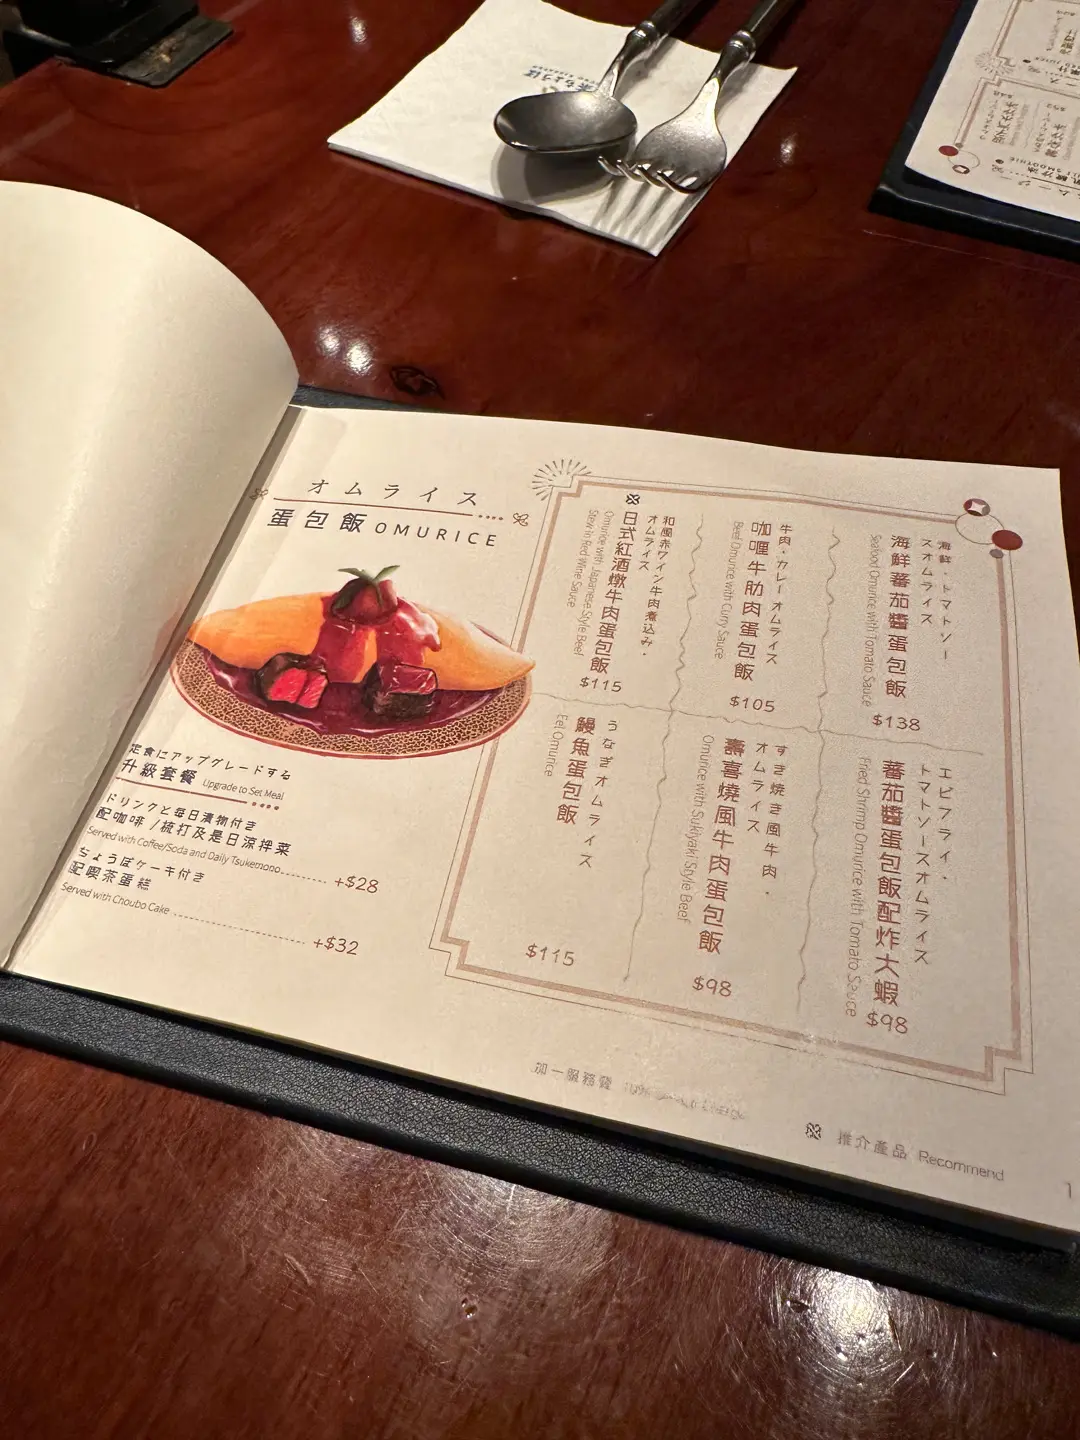 オムライス
蛋包飯 OMURICE
定食にアップグレードする
升級套餐 Upgrade to Set Meal
ドリンクと毎日漬物付き
配咖啡/梳打及是日涼拌菜
Served with Coffee/Soda and Daily Tsukemono +$28
ちょうぼケーキ付き
配喫茶蛋糕
Served with Choubo Cake +$32
海鮮・トマトソー
スオムライス
海鮮蕃茄醬蛋包飯
Seafood Omurice with Tomato Sauce
$138
牛肉・カレーオムライス
咖喱牛肋肉蛋包飯
Beef Omurice with Curry Sauce
$105
和風赤ワイン牛肉煮込み・
オムライス
日式紅酒燉牛肉蛋包飯
Omurice with Japanese Style Beef
Stew in Red Wine Sauce
$115
エビフライ・
トマトソースオムライス
蕃茄醬蛋包飯配炸大蝦
Fried Shrimp Omurice with Tomato Sauce
$98
すき焼き風牛肉・
オムライス
壽喜燒風牛肉蛋包飯
Omurice with Sukiyaki Style Beef
$98
うなぎオムライス
鰻魚蛋包飯
Eel Omurice
$115
加一服務費
推介產品 Recommend
1